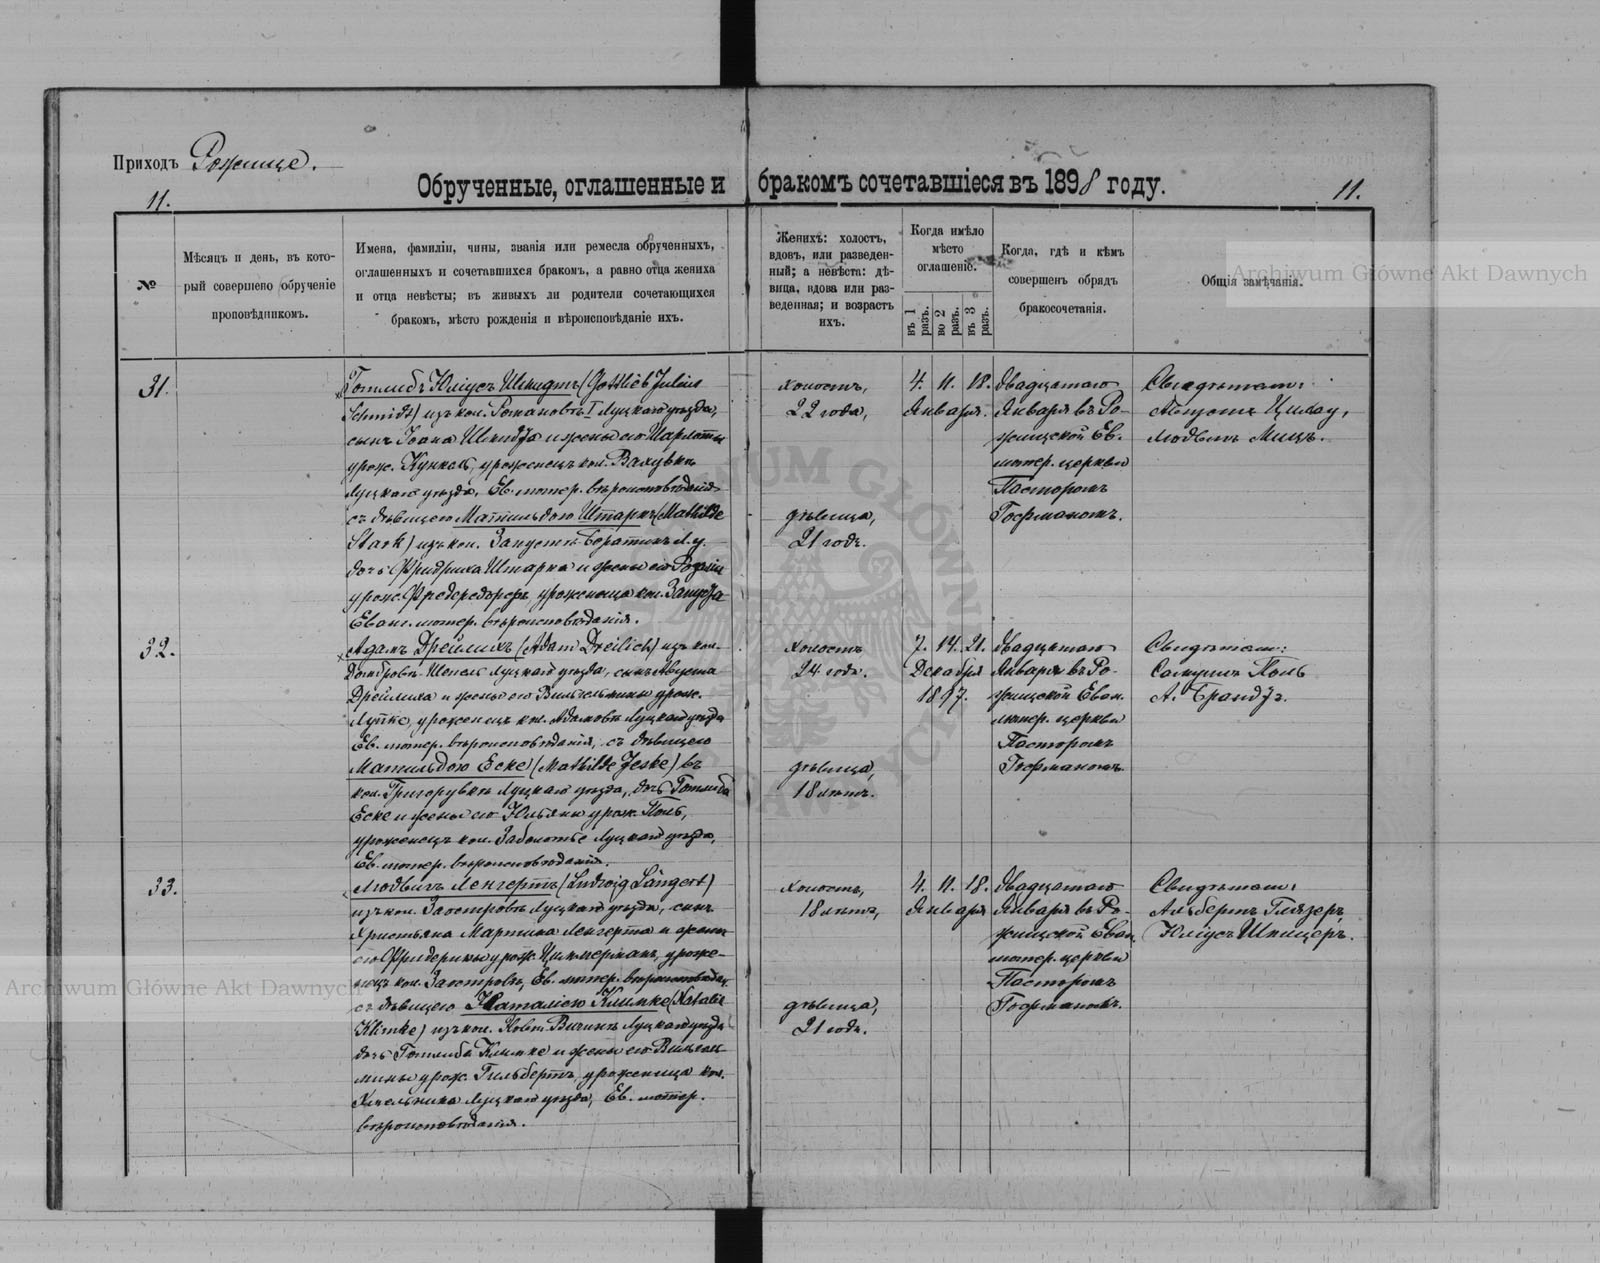 Приходъ Рожище.
11.
Обрученные, оглашенные и бракомъ сочетавшіеся въ 1898 году.
11.
№
Мѣсяцъ и день, въ кото-
рый совершено обрученіе
проповѣдникомъ.
Имена, фамиліи, чины, званія или ремесла обрученныхъ,
оглашенныхъ и сочетавшихся бракомъ, а равно отца жениха
и отца невѣсты; въ живыхъ ли родители сочетающихся
бракомъ, мѣсто рожденія и вѣроисповѣданіе ихъ.
Женихъ: холостъ,
вдовъ, или разведен-
ный; а невѣста: дѣ-
вица, вдова или раз-
веденная; и возрастъ
ихъ.
Когда имѣло
мѣсто
оглашеніе.
въ 1 разъ.
во 2 разъ.
въ 3 разъ.
Когда, гдѣ и кѣмъ
совершенъ обрядъ
бракосочетанія.
Общія замѣчанія.
31.
Готлибъ Юліусъ Шмидтъ (Gottlieb Julius
Schmidt) изъ кол. Романовъ I Луцкаго уѣзда,
сынъ Іоана Шмидта и жены его Шарлотты
урож. Кункель, уроженецъ кол.
Луцкаго уѣзда, Ев. лютер. вѣроисповѣданія
съ дѣвицею Матильдою Штаркъ (Mathilde
Stark) изъ кол.
дочь Фридриха Штарка и жены его Розаліи
урож. уроженица кол.
Еванг. лютер. вѣроисповѣданія.
холостъ,
22 года,
дѣвица,
21 годъ.
4. 11. 18.
Января.
двадцатаго
Января въ Ро-
жищской Ев.
лютер. церкви
Пасторомъ
Гофманомъ.
Свидѣтели:
Августъ
Людвигъ
32.
Адамъ Дрейлихъ (Adam Dreilich) изъ кол.
Луцкаго уѣзда, сынъ Августа
Дрейлиха и жены его Вильгельмины урож.
уроженецъ кол. Адамовъ Луцкаго уѣзда
Ев. лютер. вѣроисповѣданія, съ дѣвицею
Матильдою Еске (Mathilde Jeske) въ
кол. Григорувкѣ Луцкаго уѣзда, дочь Готлиба
Еске и жены его Юльяны урож. Поль,
уроженецъ кол. Заболотье Луцкаго уѣзда,
Ев. лютер. вѣроисповѣданія.
холостъ
24 годъ.
дѣвица,
18 лѣтъ.
7. 14. 21.
Декабря
1897.
двадцатаго
Января въ Ро-
жищской Еван.
лютер. церкви
Пасторомъ
Гофманомъ.
Свидѣтели:
Поль
А. Брандтъ.
33.
Людвигъ Ленгертъ (Ludwig Längert)
изъ кол. Заостровъ Луцкаго уѣзда, сынъ
Христьяна Мартина Ленгерта и жены
его Фридерики урож. Циммерманъ, уроже-
нецъ кол. Заостровъ, Ев. лютер. вѣроисповѣдан.
съ дѣвицею Наталіею Климке (Natalie
Klimke) изъ кол. Луцкаго уѣзда
дочь Готлиба Климке и жены его Вильгель-
мины урож. Гильбертъ, уроженица кол.
Хмельника Луцкаго уѣзда, Ев. лютер.
вѣроисповѣданія.
холостъ,
18 лѣтъ,
дѣвица,
21 годъ.
4. 11. 18.
Января
двадцатаго
Января въ Ро-
жищской Еван.
лютер. церкви
Пасторомъ
Гофманомъ.
Свидѣтели:
Альбертъ Глязеръ,
Юліусъ Шпицеръ.
Archiwum Główne Akt Dawnych
Archiwum Główne Akt Dawnych